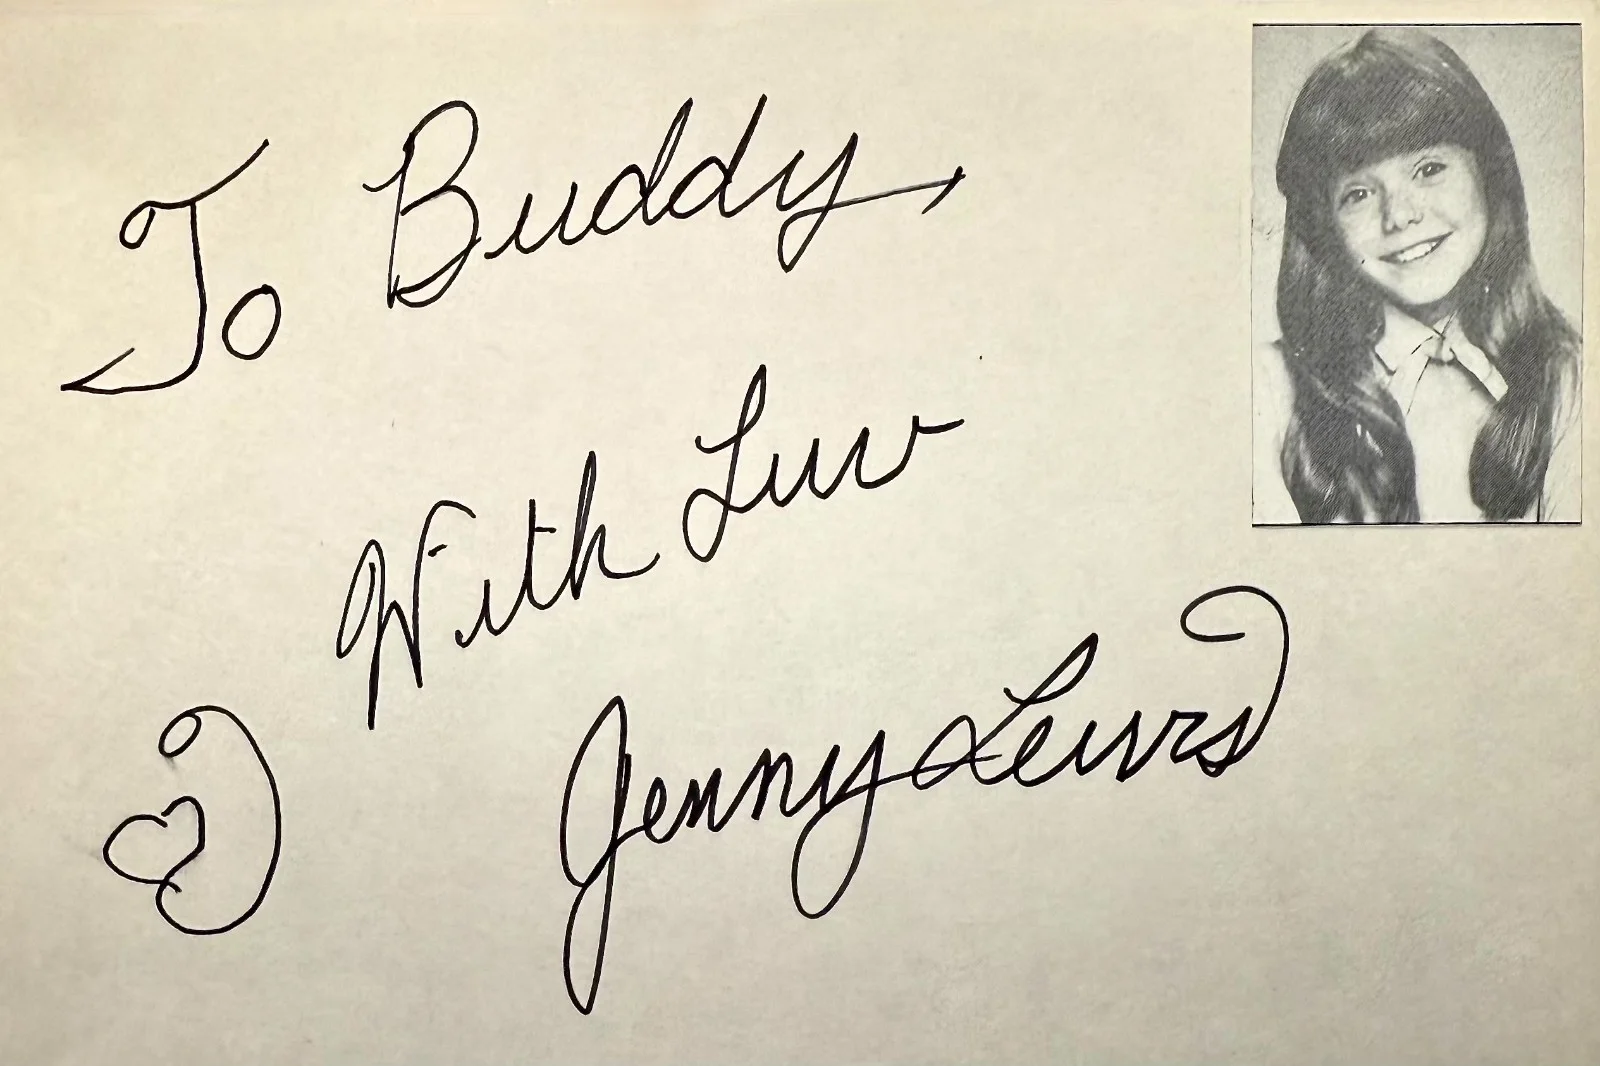 To Buddy,
With Luv
Jenny Lewis